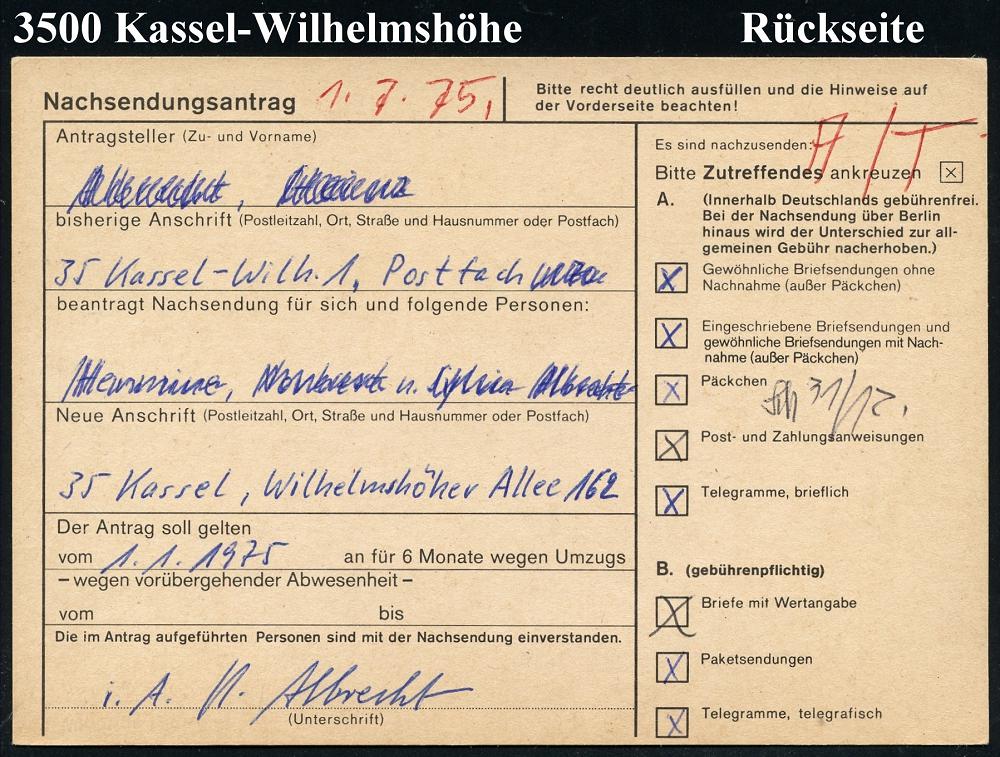 3500 Kassel-Wilhelmshöhe Rückseite
Nachsendungsantrag 1. 7. 75,
Bitte recht deutlich ausfüllen und die Hinweise auf
der Vorderseite beachten!
Antragsteller (Zu- und Vorname)
bisherige Anschrift (Postleitzahl, Ort, Straße und Hausnummer oder Postfach)
35 Kassel-Wilh. 1, Postfach
beantragt Nachsendung für sich und folgende Personen:
u.
Neue Anschrift (Postleitzahl, Ort, Straße und Hausnummer oder Postfach)
35 Kassel, Wilhelmshöher Allee 162
Der Antrag soll gelten
vom 1.1.1975 an für 6 Monate wegen Umzugs
– wegen vorübergehender Abwesenheit –
vom bis
Die im Antrag aufgeführten Personen sind mit der Nachsendung einverstanden.
i. A. H. Albrecht
(Unterschrift)
Es sind nachzusenden: A/T
Bitte Zutreffendes ankreuzen
A. (Innerhalb Deutschlands gebührenfrei.
Bei der Nachsendung über Berlin
hinaus wird der Unterschied zur all-
gemeinen Gebühr nacherhoben.)
Gewöhnliche Briefsendungen ohne
Nachnahme (außer Päckchen)
Eingeschriebene Briefsendungen und
gewöhnliche Briefsendungen mit Nach-
nahme (außer Päckchen)
Päckchen 31/12.
Post- und Zahlungsanweisungen
Telegramme, brieflich
B. (gebührenpflichtig)
Briefe mit Wertangabe
Paketsendungen
Telegramme, telegrafisch